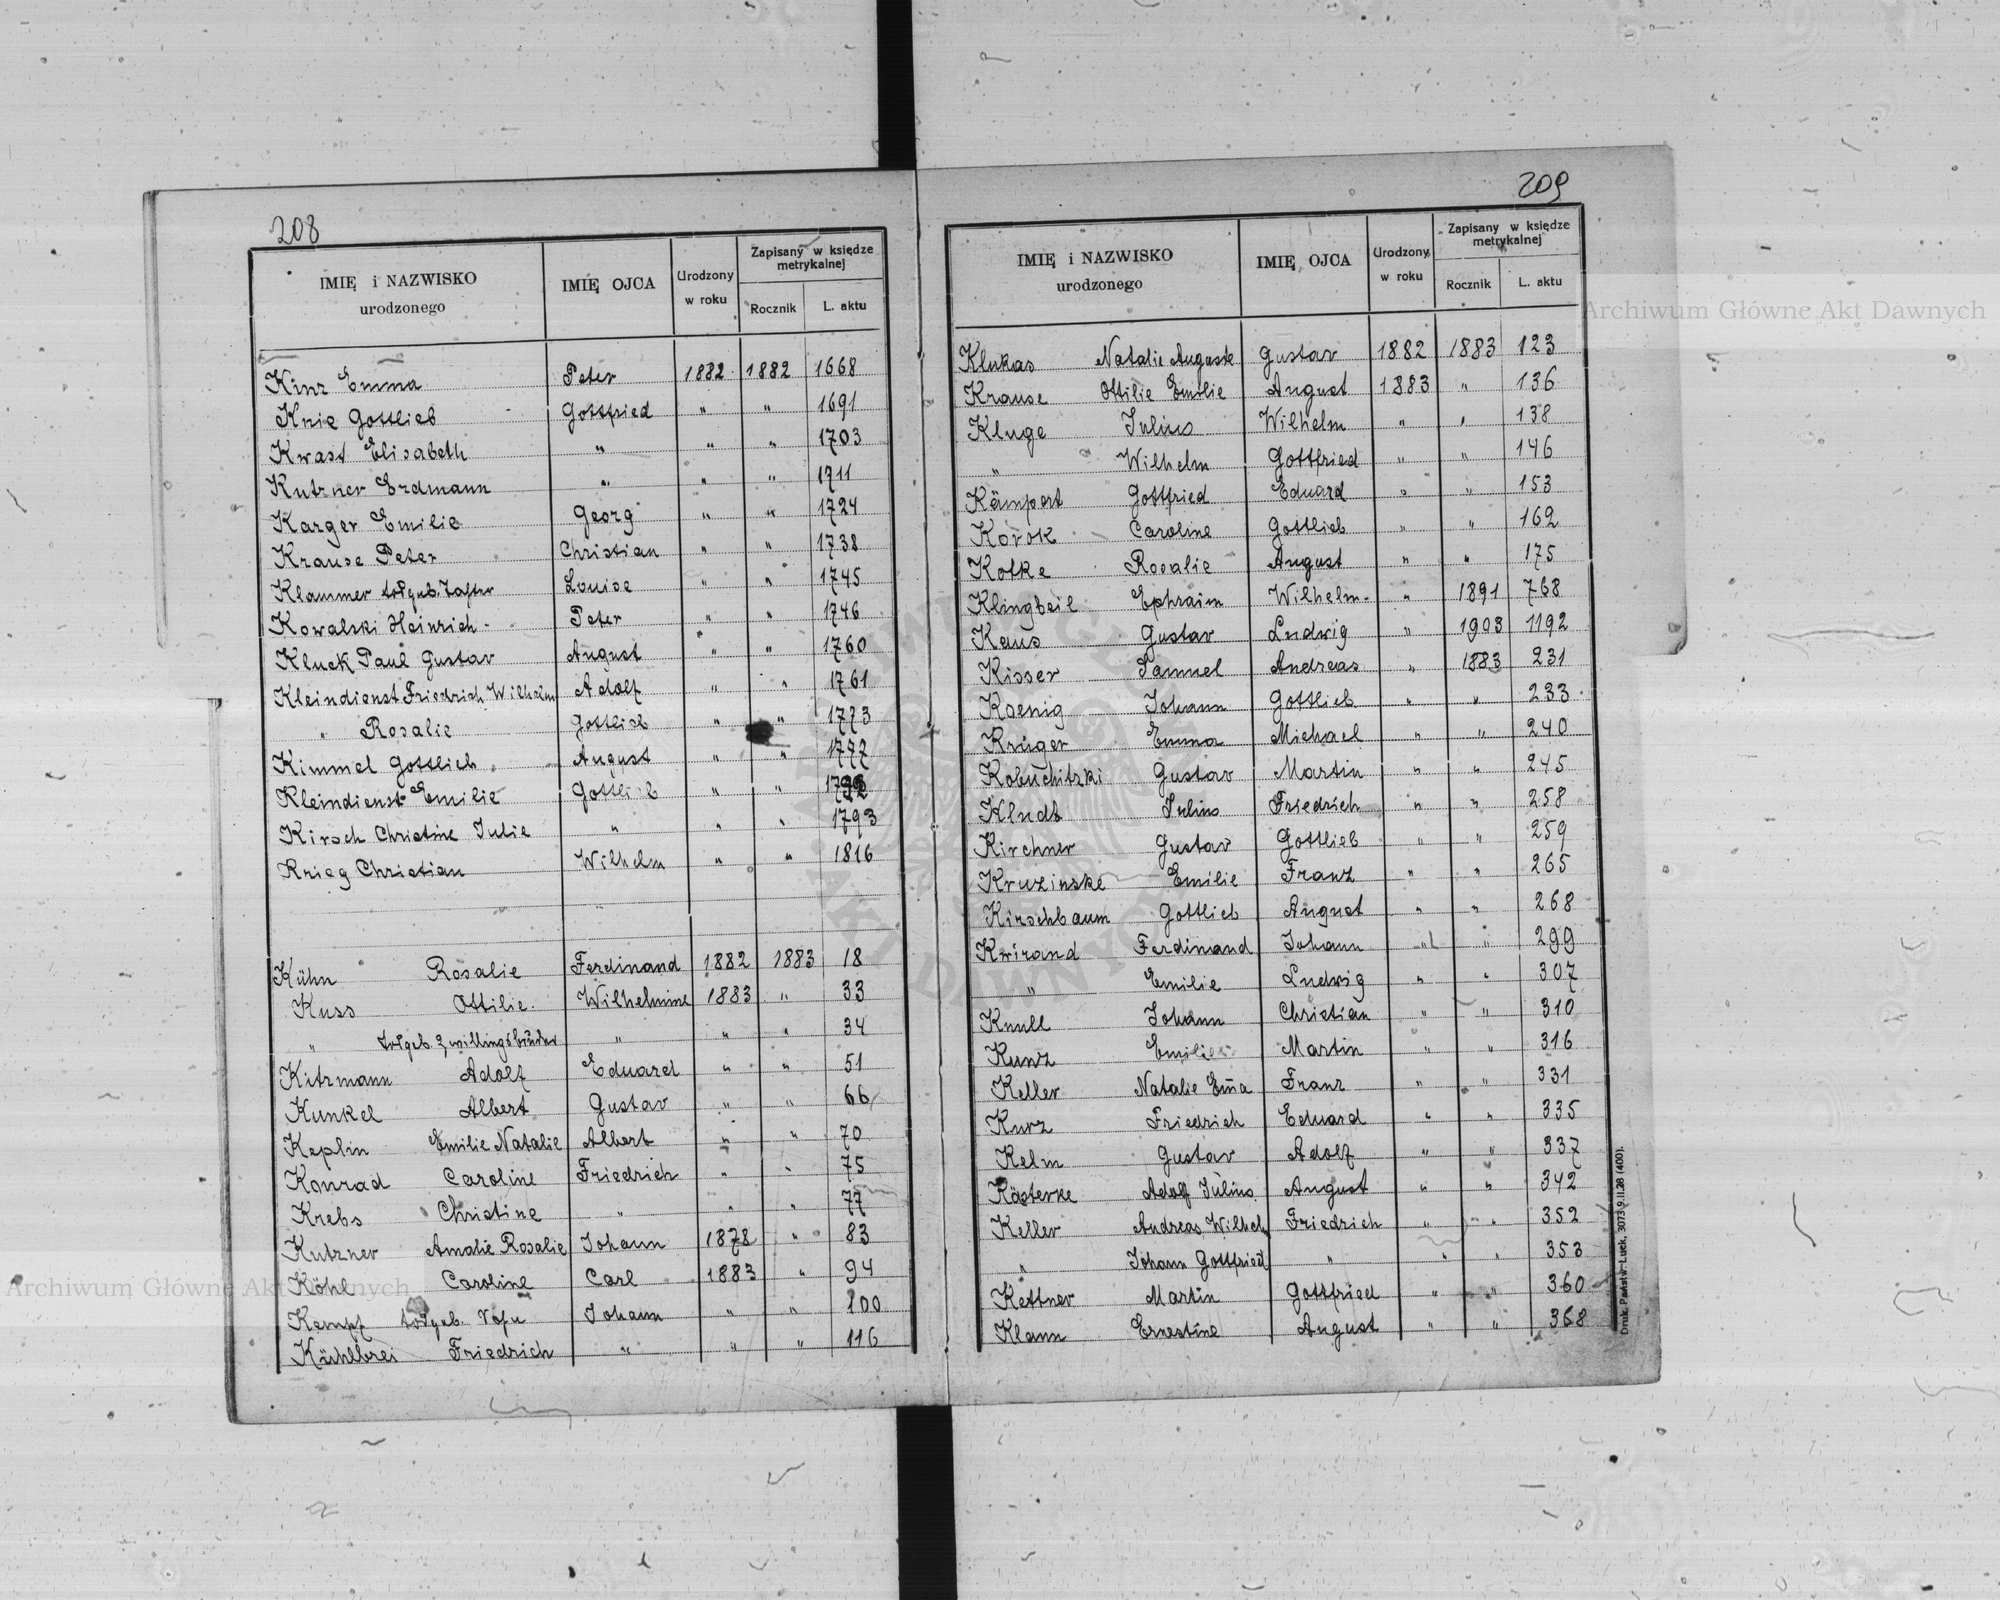 208
IMIĘ i NAZWISKO urodzonego | IMIĘ OJCA | Urodzony w roku | Zapisany w księdze metrykalnej
Rocznik | L. aktu
Kinz Emma | Peter | 1882 | 1882 | 1668
Knie Gottlieb | Gottfried | " | " | 1691
Kwast Elisabeth | " | " | " | 1703
Kutzner Erdmann | " | " | " | 1711
Karger Emilie | Georg | " | " | 1724
Krause Peter | Christian | " | " | 1738
Klammer todgeb. Tochter | Louise | " | " | 1745
Kowalski Heinrich | Peter | " | " | 1746
Kluck Paul Gustav | August | " | " | 1760
Kleindienst Friedrich Wilhelm | Adolf | " | " | 1761
" Rosalie | Gottlieb | " | " | 1773
Kimmel Gottlieb | August | " | " | 1777
Kleindienst Emilie | Gottlieb | " | "
Kirsch Christine Julie | " | " | " | 1793
Krieg Christian | Wilhelm | " | " | 1816
Kühn Rosalie | Ferdinand | 1882 | 1883 | 18
Kuss Ottilie | Wilhelmine | 1883 | " | 33
" todgeb. Zwillingsbrüder | " | " | " | 34
Kitzmann Adolf | Eduard | " | " | 51
Kunkel Albert | Gustav | " | " | 66
Keplin Emilie Natalie | Albert | " | " | 70
Konrad Caroline | Friedrich | " | " | 75
Krebs Christine | " | " | " | 77
Kutzner Amalie Rosalie | Johann | 1878 | " | 83
Köhl Caroline | Carl | 1883 | " | 94
Kempf todgeb. | Johann | " | " | 100
Kühlbrei Friedrich | " | " | " | 116
209
IMIĘ i NAZWISKO urodzonego | IMIĘ OJCA | Urodzony w roku | Zapisany w księdze metrykalnej
Rocznik | L. aktu
Klukas Natalie Auguste | Gustav | 1882 | 1883 | 123
Krause Ottilie Emilie | August | 1883 | " | 136
Kluge Julius | Wilhelm | " | " | 138
" Wilhelm | Gottfried | " | " | 146
Kämpert Gottfried | Eduard | " | " | 153
Korok Caroline | Gottlieb | " | " | 162
Kotke Rosalie | August | " | " | 175
Klingbeil Ephraim | Wilhelm | " | 1891 | 768
Kaus Gustav | Ludwig | " | 1903 | 1192
Kisser Samuel | Andreas | " | 1883 | 231
Koenig Johann | Gottlieb | " | " | 233
Krüger Emma | Michael | " | " | 240
Kobuchitzki Gustav | Martin | " | " | 245
Klndt Julius | Friedrich | " | " | 258
Kirchner Gustav | Gottlieb | " | " | 259
Kruzinske Emilie | Franz | " | " | 265
Kirschbaum Gottlieb | August | " | " | 268
Kwirand Ferdinand | Johann | " | " | 299
" Emilie | Ludwig | " | " | 307
Knull Johann | Christian | " | " | 310
Kunz Emilie | Martin | " | " | 316
Keller Natalie Em̄a | Franz | " | " | 331
Kurz Friedrich | Eduard | " | " | 335
Kelm Gustav | Adolf | " | " | 337
Kösterke Adolf Julius | August | " | " | 342
Keller Andreas Wilhelm | Friedrich | " | " | 352
" Johann Gottfried | " | " | " | 353
Kettner Martin | Gottfried | " | " | 360
Klann Ernestine | August | " | " | 368
Druk. Państw. Łuck, 3073 9.II.28 (400).
Archiwum Główne Akt Dawnych
Archiwum Główne Akt Dawnych